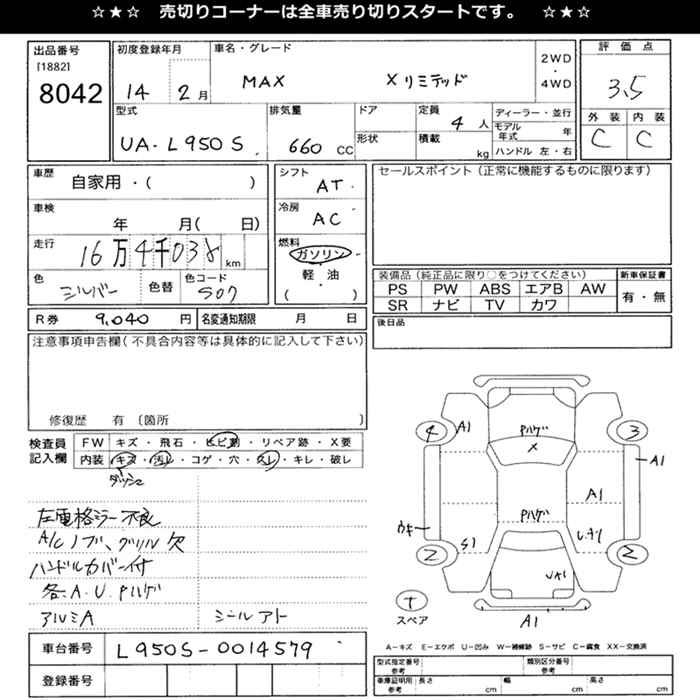 ☆★☆ 売切りコーナーは全車売り切りスタートです。 ☆★☆
出品番号
[1882]
8042
初度登録年月
14 2月
車名・グレード
MAX Xリミテッド
2WD
・
4WD
評価点
3.5
外装 内装
C C
型式
UA-L950S
排気量
660 CC
ドア
形状
定員
4人
積載
kg
ディーラー・並行
モデル年式 年
ハンドル 左・右
車歴
自家用・( )
車検
年 月( 日)
走行
16万4千038 km
色
シルバー
色替
色コード
S07
シフト
AT
冷房
AC
燃料
ガソリン
軽・油
( )
セールスポイント(正常に機能するものに限ります)
装備品(純正品に限り○をつけてください)
PS PW ABS エアB AW
SR ナビ TV カワ
新車保証書
有・無
R券 9,040 円
名変通知期限 月 日
後日品
注意事項申告欄(不具合内容等は具体的に記入して下さい)
修復歴 有〔箇所 〕
検査員記入欄
FW キズ・飛石・ヒビ割・リペア跡・X要
内装 キズ・汚レ・コゲ・穴・スレ・キレ・破レ
ダッシュ
左電格ミラー不良
A/Cノブ、グリル欠
ハンドルカバー付
各A.U.Pハゲ
アルミA シールアト
車台番号 L950S-0014579
登録番号
4 A1 Pハゲ 3
X
A1
A1
Pハゲ
ウキ
S1
2 2
UA1
T
スペア
A1
A-キズ E-エクボ U-凹み W-補修跡 S-サビ C-腐食 XX-交換済
型式指定番号
参考
類別区分番号
参考
車庫証明用
参考
長さ cm 幅 cm 高さ cm